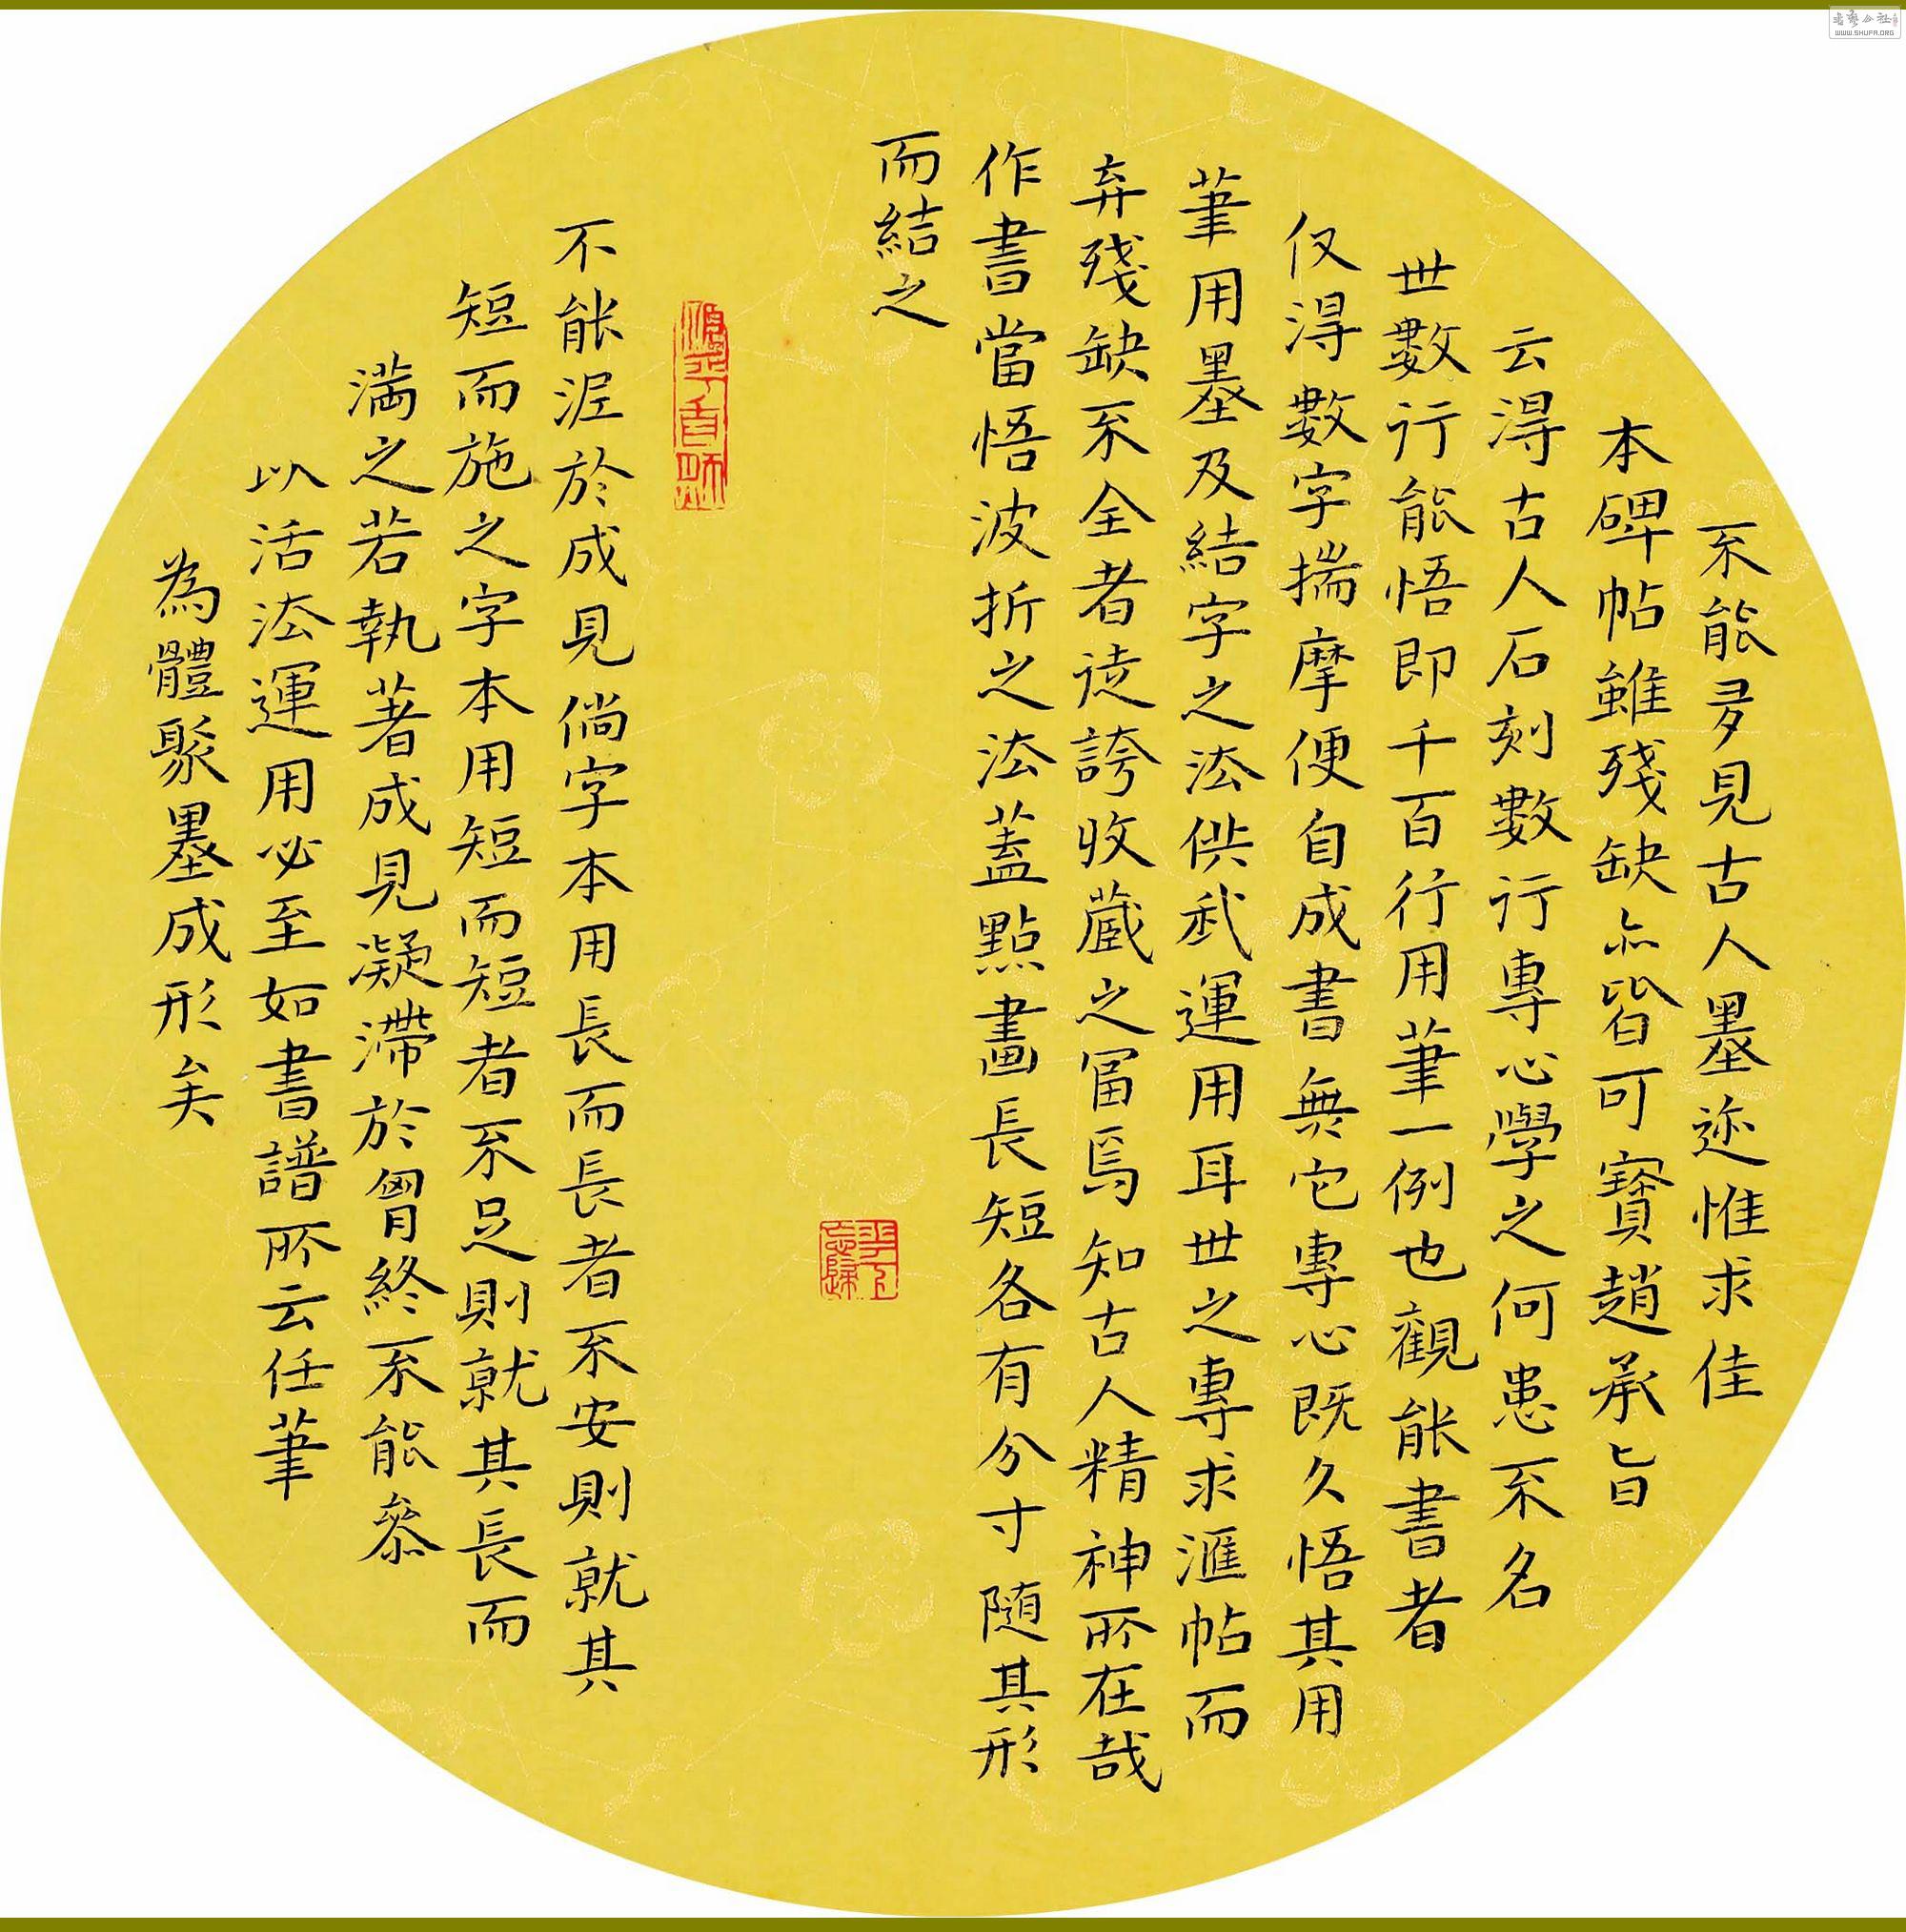 不能多見古人墨迹惟求佳
本碑帖雖殘缺亦皆可寶趙承旨
云得古人石刻數行專心學之何患不名
世數行能悟即千百行用筆一例也觀能書者
仅得數字揣摩便自成書無它專心既久悟其用
筆用墨及結字之法供我運用耳世之專求滙帖而
弃殘缺不全者徒誇收藏之富焉知古人精神所在哉
作書當悟波折之法蓋點畫長短各有分寸随其形
而結之
不能泥於成見倘字本用長而長者不安則就其
短而施之字本用短而短者不足則就其長而
満之若執著成見凝滯於胷終不能叅
以活法運用必至如書譜所云任筆
為體聚墨成形矣
書學公社
WWW.SHUFA.ORG